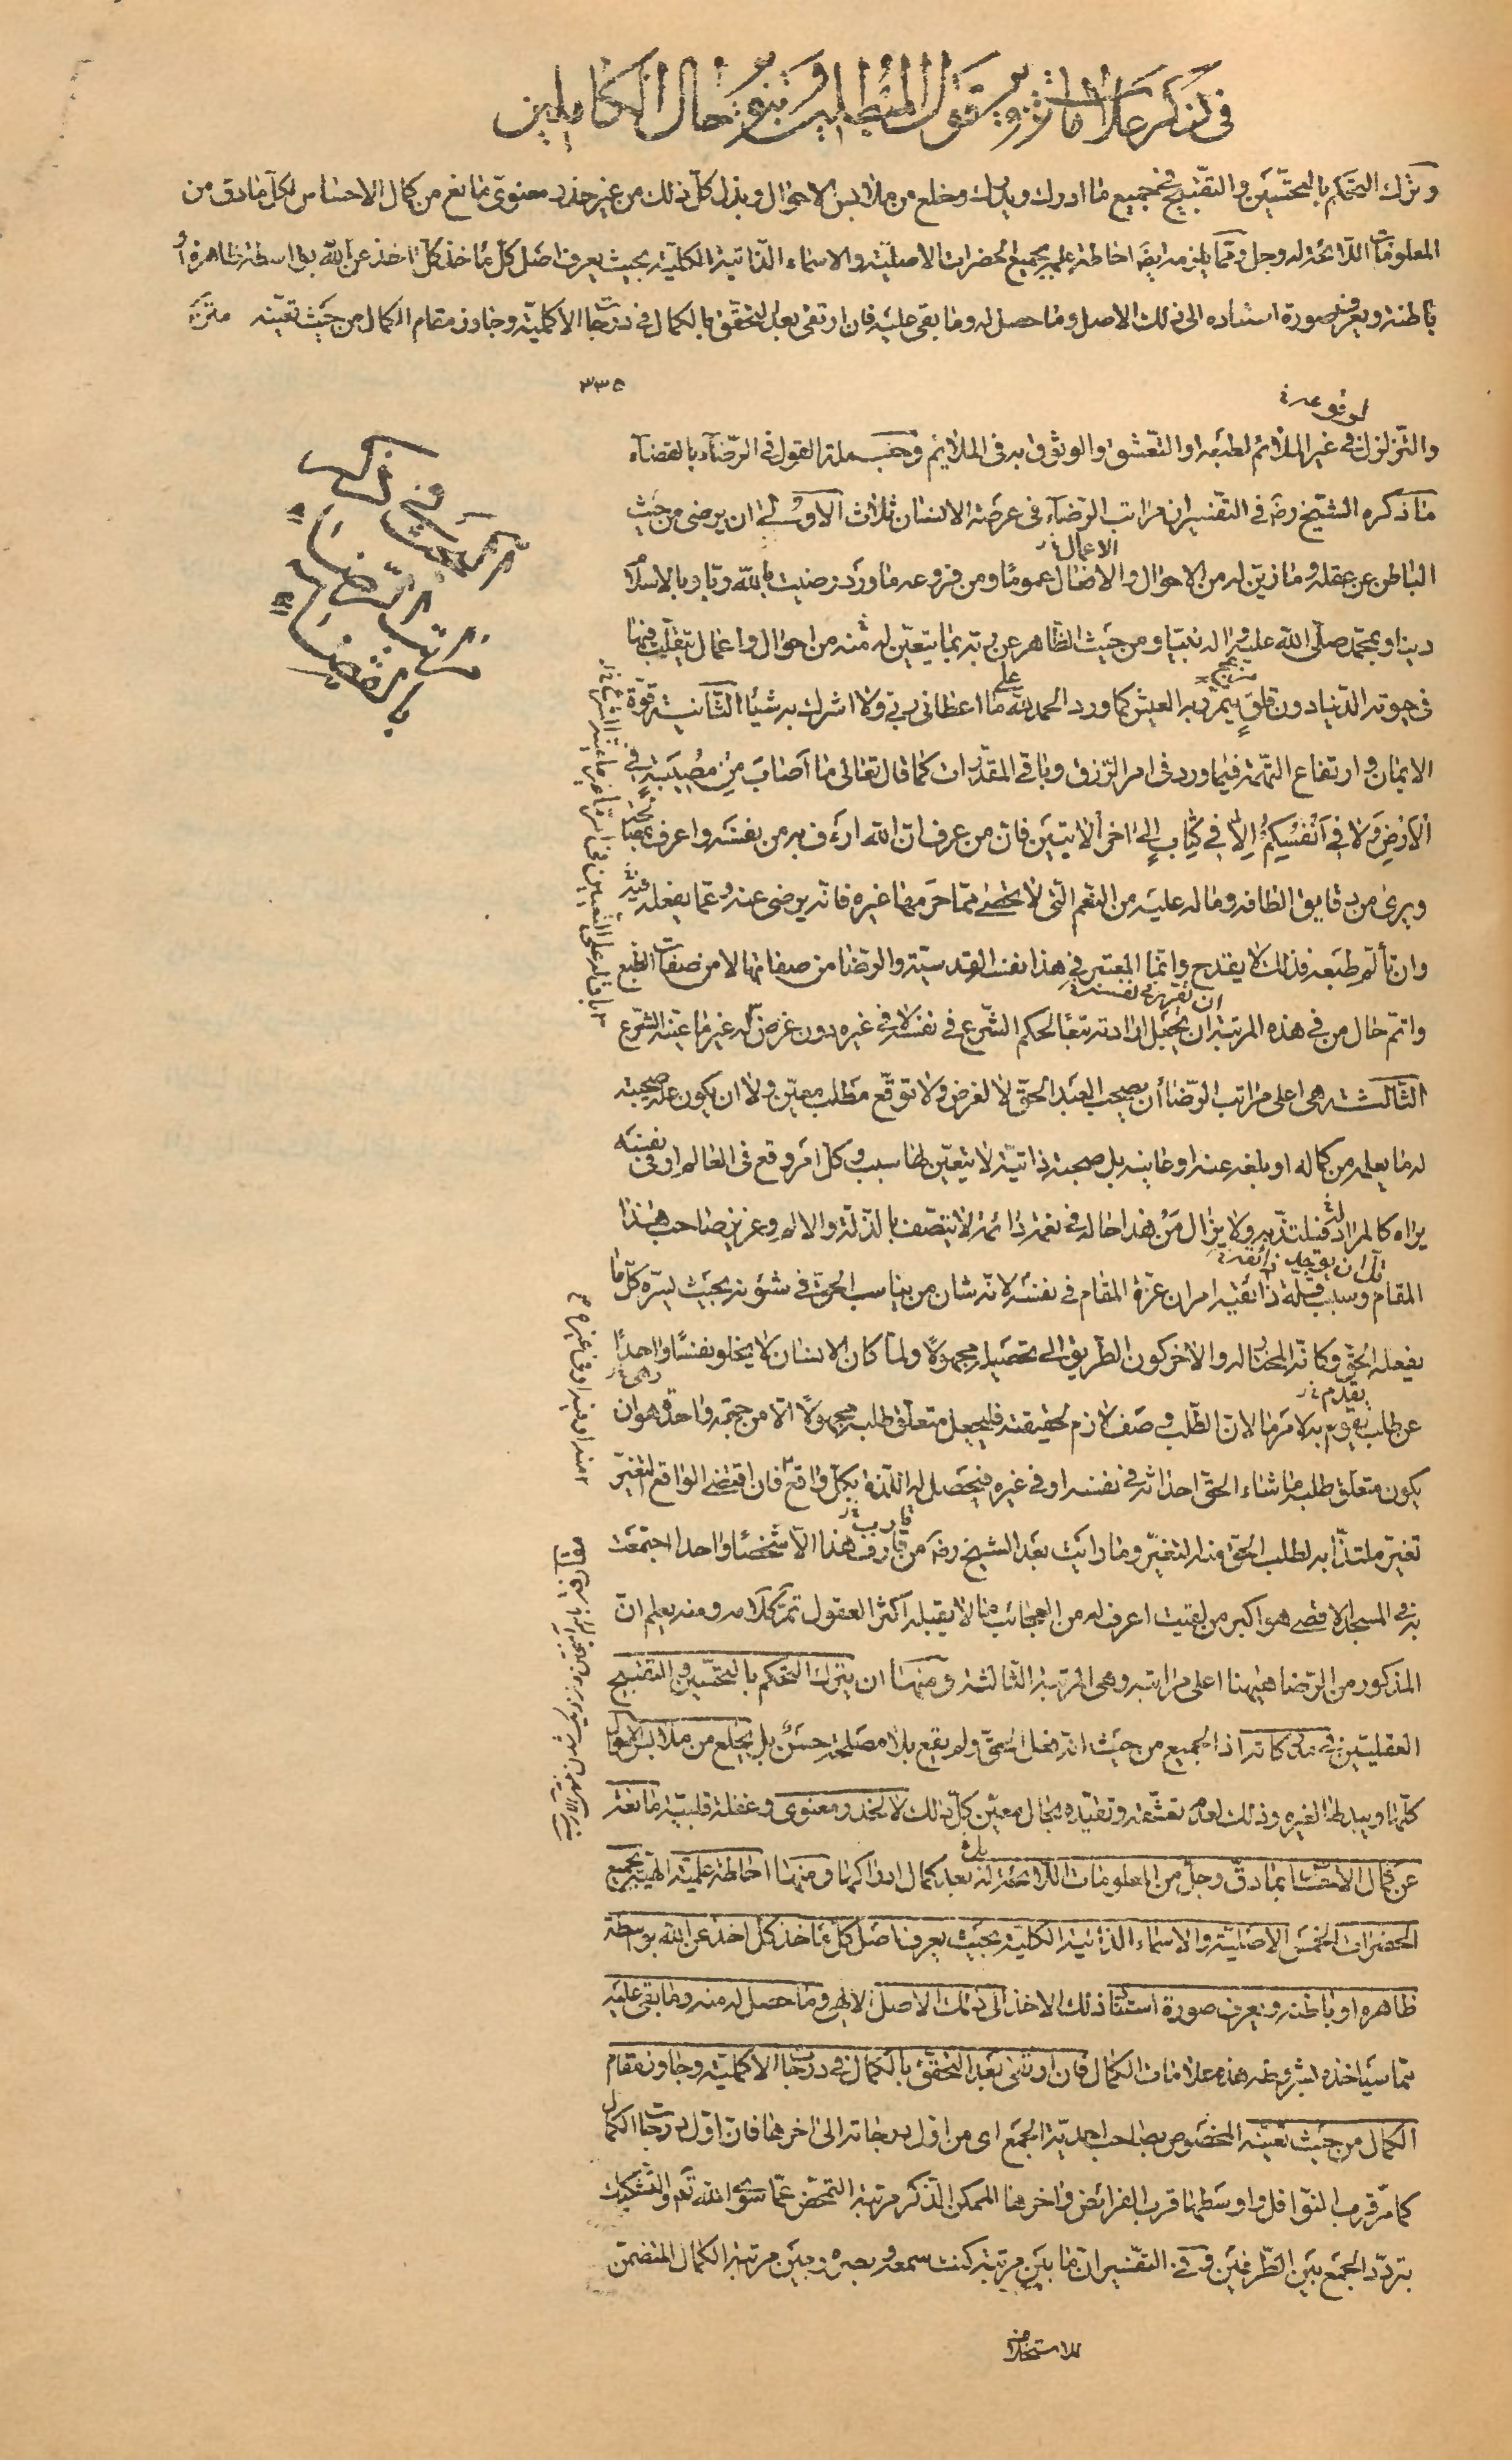 في ذكر علامات تزوير قول المبطلين وتنوير حال الكاملين
وترك التحكم بالتحسين والتقبيح في جميع ما ادرك ويدرك ومخلع من ملابس الاحوال وبذل كل ذلك من غير خدر معنوي مانع من كمال الاحساس لكل ما دق من
المعلومات اللائحة له وجل ومما يلزمه ايضا احاطة علمه بجميع الحضرات الاصلية والاسماء الذاتية الكلية بحيث يعرف اصل كل مأخذ كل اخذ عن الله بواسطة ظاهرة أو
باطنة ويعرف صورة استناده الى ذلك الاصل وما حصل له وما بقى عليه فان ارتقى بعد التحقق بالكمال في درجات الاكملية وجاوز مقام الكمال من حيث تعينه
٣٣٥
لوقوعه
والتزلزل في غير الملائم لطبعه او التعشق والوثوق به في الملايم وجملة القول في الرضاء بالقضاء
ما ذكره الشيخ رضه في التفسير ان مراتب الرضاء في عرصة الانسان ثلاث الاولى ان يرضى من حيث
الاعمال
الباطن عن عقله وما زين له من الاحوال والافعال عموما ومن فروعه ما ورد رضيت بالله ربا وبالاسلام
دينا وبمحمد صلى الله عليه واله نبيا ومن حيث الظاهر عن ربه بما يتعين له منه من احوال واعمال يتقلب فيها
في حيوته الدنيا دون قلق يتمرر به العيش كما ورد الحمد لله على ما اعطاني ربي ولا اشرك به شيئا الثانية قوة
الايمان وارتفاع التهمة فيما ورد في امر الرزق وباقي المقدرات كما قال تعالى ما اصاب من مصيبة في
الارض ولا في انفسكم الا في كتاب الى اخر الايتين فان من عرف ان الله ارءف به من نفسه واعرف بمصالحه
ويرى من دقايق الطافه وماله عليه من النعم التي لا تحصى مما حرمها غيره فانه يرضى عنه وعما يفعله فيه
وان تألم طبعه فذلك لا يقدح وانما المعتبر في هذا نفسه القدسية والرضا من صفاتها لا من صفات الطبع
واتم حال من في هذه المرتبة ان يجعل ارادته تبعا لحكم الشرع في نفسه وفي غيره دون غرض له غير ما عينه الشرع
الثالثة هي اعلى مراتب الرضا أن يصحب العبد الحق لا لغرض ولا توقع مطلب معين ولا ان يكون علة صحبته
له ما يعلمه من كماله او بلغه عنه او عاينه بل صحبة ذاتية لا يتعين لها سبب وكل امر وقع في العالم او في نفسه
يراه كالمراد له فيلتذ به ولا يزال من هذا حاله في نعمة دائمة لا يتصف بالذلة والالم وعزيز صاحب هذا
المقام وسبب قلة ذائقيه امران عزة المقام في نفسه لانه شان من يناسب الحق في شؤنه بحيث يسره كل ما
يفعله الحق وكانه المختار له والاخر كون الطريق الى تحصيله مجهولا ولما كان الانسان لا يخلو نفسا واحدا
عن طلب يقوم به لامر ما لان الطلب وصف لازم لحقيقته فليجعل متعلق طلبه مجهولا الا من جهة واحدة وهو ان
يكون متعلق طلبه ما شاء الحق احداثه في نفسه او في غيره فيحصل له اللذة بكل واقع فان اقتضى الواقع التغير
تغير ملتذا به لطلب الحق منه التغير وما رأيت بعد الشيخ رضه من قارف هذا الا شخصا واحدا اجتمعت
به في المسجد الاقصى هو اكبر من لقيت اعرف له من العجائب ما لا يقبله اكثر العقول تم كلامه ومنه يعلم ان
المذكور من الرضا هيهنا اعلى مراتبه وهي المرتبة الثالثة ومنها ان يترك التحكم بالتحسين والتقبيح
العقليين في مدركاته اذ الجميع من حيث انه فعل الحق ولم يقع بلا مصلحة حسن بل يخلع من ملابس الاحوال
كلها ويبذلها لغيره وذلك لعدم تعشقه وتقيده بحال معين كل ذلك لا لخدر معنوي وغفلة قلبية مانعة
عن كمال الاحساس بما دق وجل من المعلومات اللائحة له بعد كمال ادراكها ومنها احاطة علمية الهية بجميع
الحضرات الخمس الاصلية والاسماء الذاتية الكلية بحيث يعرف اصل كل مأخذ كل اخذ عن الله بواسطة
ظاهره او باطنه ويعرف صورة استناد ذلك الاخذ الى ذلك الاصل الالهي وما حصل له منه وما بقى عليه
مما سيأخذه بشروطه هذه علامات الكمال فان ارتقى بعد التحقق بالكمال في درجات الاكملية وجاوز مقام
الكمال من حيث تعينه المخصوص بصاحب احدية الجمع اى من اول درجاته الى اخرها فان اول درجات الكمال
كما مر قرب النوافل واوسطها قرب الفرائض واخرها الممكن الذكر مرتبة التمحض عما سوى الله تم والتشكيك
بتردد الجمع بين الطرفين وفي التفسير ان ما بين مرتبة كنت سمعه وبصره وبين مرتبة الكمال المتضمن
للاستخلاف
البحث في ذكر
مراتب الرضاء
بالقضاء